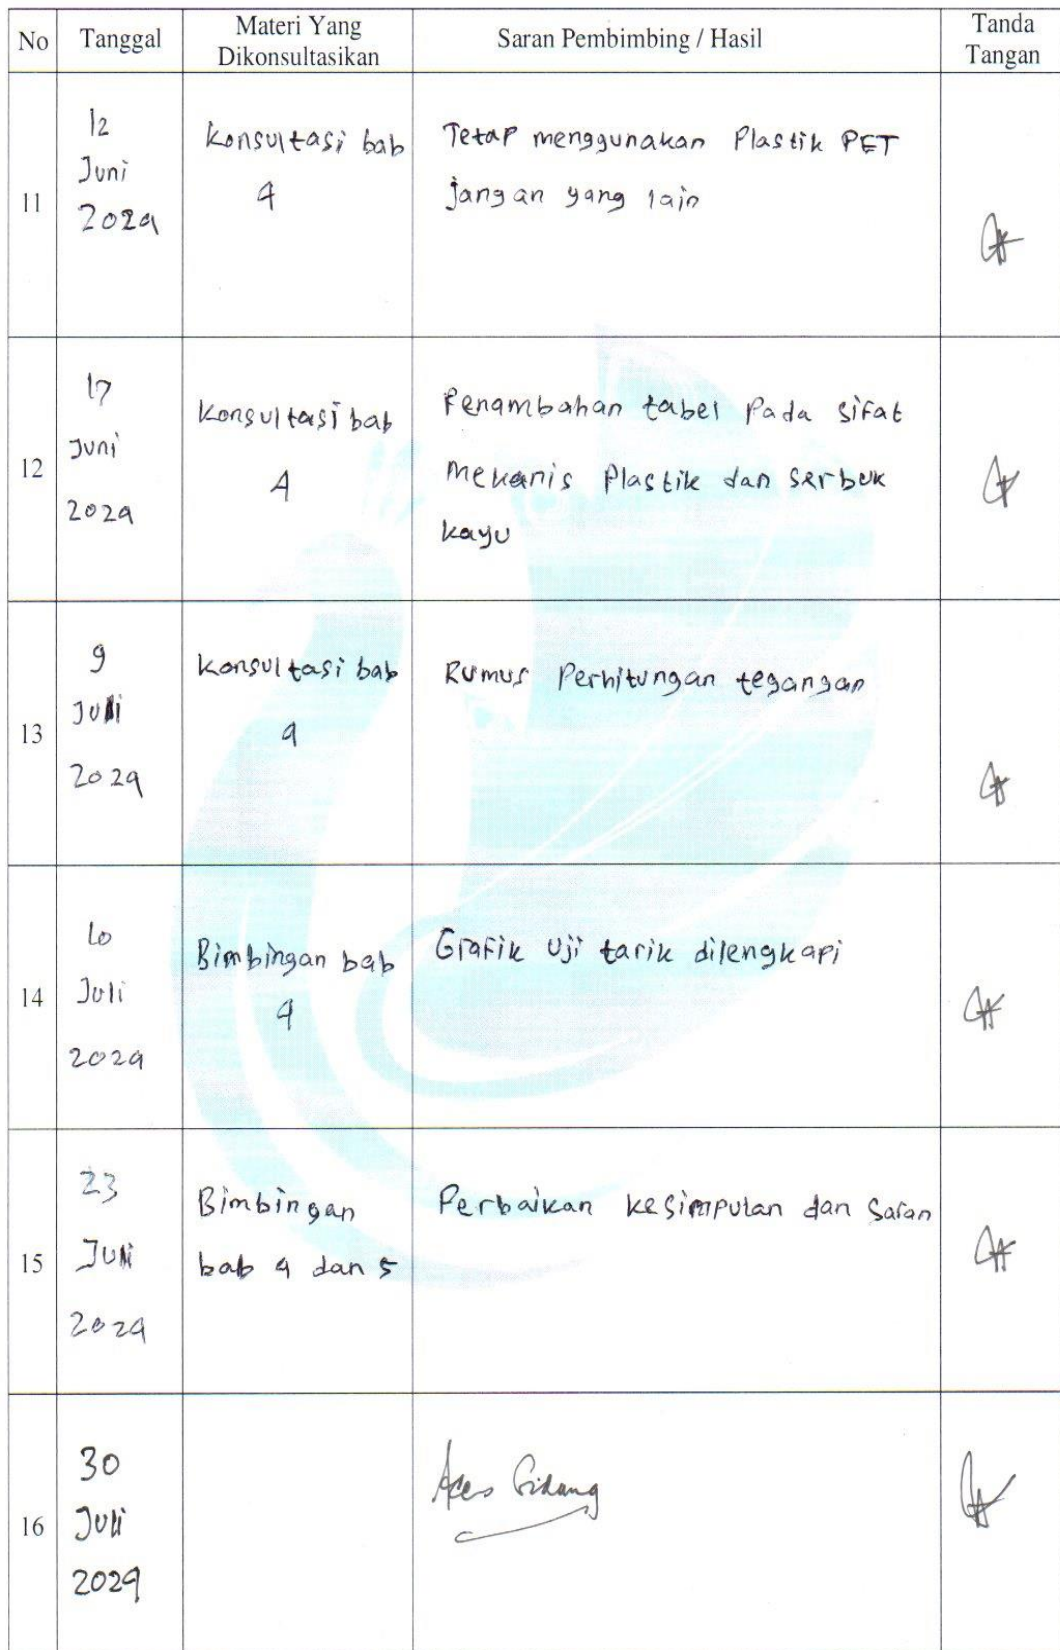 No Tanggal Materi Yang Dikonsultasikan Saran Pembimbing / Hasil Tanda Tangan
11
12
Juni
2024
Konsultasi bab
4
Tetap menggunakan Plastik PET
jangan yang lain
12
17
Juni
2024
Konsultasi bab
4
Penambahan tabel Pada sifat
mekanis Plastik dan serbuk
kayu
13
9
Juli
2024
Konsultasi bab
4
Rumus Perhitungan tegangan
14
10
Juli
2024
Bimbingan bab
4
Grafik Uji tarik dilengkapi
15
23
Juli
2024
Bimbingan
bab 4 dan 5
Perbaikan kesimpulan dan Saran
16
30
Juli
2024
Sidang